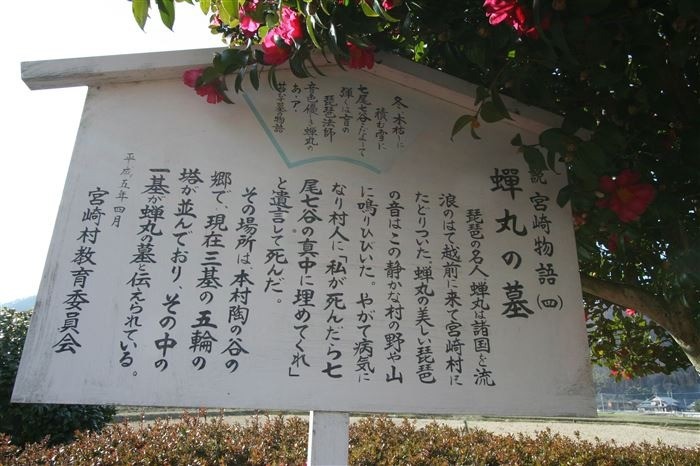 説 宮崎物語(四)
蟬丸の墓
琵琶の名人、蟬丸は諸国を流
浪のはて越前に来て宮崎村に
たどりついた。蟬丸の美しい琵琶
の音はこの静かな村の野や山
に鳴りひびいた。やがて病気に
なり村人に「私が死んだら七
尾七谷の真中に埋めてくれ」
と遺言して死んだ。
その場所は、本村陶の谷の
郷で、現在三基の五輪の
塔が並んでおり、その中の
一基が蟬丸の墓と伝えられている。
平成五年四月
宮崎村教育委員会
冬、木枯しに
積む雪に
七尾七谷こだまして
弾くは盲の
琵琶法師
音色優しき蟬丸の
あゝア、